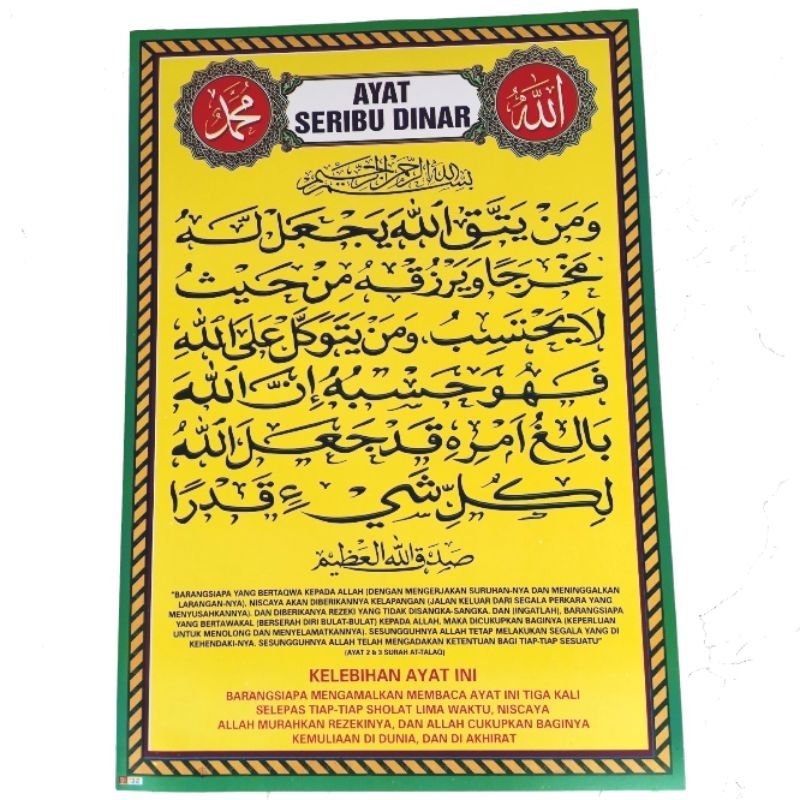 محمد
AYAT
SERIBU DINAR
الله
بسم الله الرحمن الرحيم
وَمَنْ يَتَّقِ اللهَ يَجْعَلْ لَهُ
مَخْرَجًا وَيَرْزُقْهُ مِنْ حَيْثُ
لَا يَحْتَسِبُ، وَمَنْ يَتَوَكَّلْ عَلَى اللهِ
فَهُوَ حَسْبُهُ إِنَّ اللهَ
بَالِغُ اَمْرِهِ قَدْ جَعَلَ اللهُ
لِكُلِّ شَيْءٍ قَدْرًا
صدق الله العظيم
"BARANGSIAPA YANG BERTAQWA KEPADA ALLAH (DENGAN MENGERJAKAN SURUHAN-NYA DAN MENINGGALKAN
LARANGAN-NYA), NISCAYA AKAN DIBERIKANNYA KELAPANGAN (JALAN KELUAR DARI SEGALA PERKARA YANG
MENYUSAHKANNYA). DAN DIBERIKANYA REZEKI YANG TIDAK DISANGKA-SANGKA. DAN (INGATLAH), BARANGSIAPA
YANG BERTAWAKAL (BERSERAH DIRI BULAT-BULAT) KEPADA ALLAH, MAKA DICUKUPKAN BAGINYA (KEPERLUAN
UNTUK MENOLONG DAN MENYELAMATKANNYA). SESUNGGUHNYA ALLAH TETAP MELAKUKAN SEGALA YANG DI
KEHENDAKI-NYA. SESUNGGUHNYA ALLAH TELAH MENGADAKAN KETENTUAN BAGI TIAP-TIAP SESUATU"
(AYAT 2 & 3 SURAH AT-TALAQ)
KELEBIHAN AYAT INI
BARANGSIAPA MENGAMALKAN MEMBACA AYAT INI TIGA KALI
SELEPAS TIAP-TIAP SHOLAT LIMA WAKTU, NISCAYA
ALLAH MURAHKAN REZEKINYA, DAN ALLAH CUKUPKAN BAGINYA
KEMULIAAN DI DUNIA, DAN DI AKHIRAT